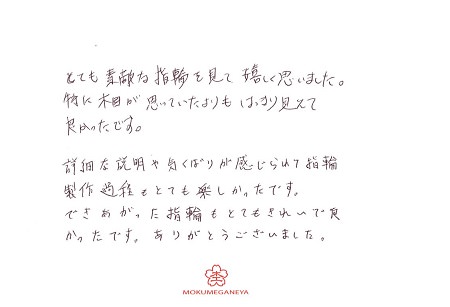 とても素敵な指輪を見て嬉しく思いました。
特に木目が思っていたよりもはっきり見えて
良かったです。
詳細な説明や気くばりが感じられて指輪
製作過程もとても楽しかったです。
できあがった指輪もとてもきれいで良
かったです。ありがとうございました。
MOKUMEGANEYA